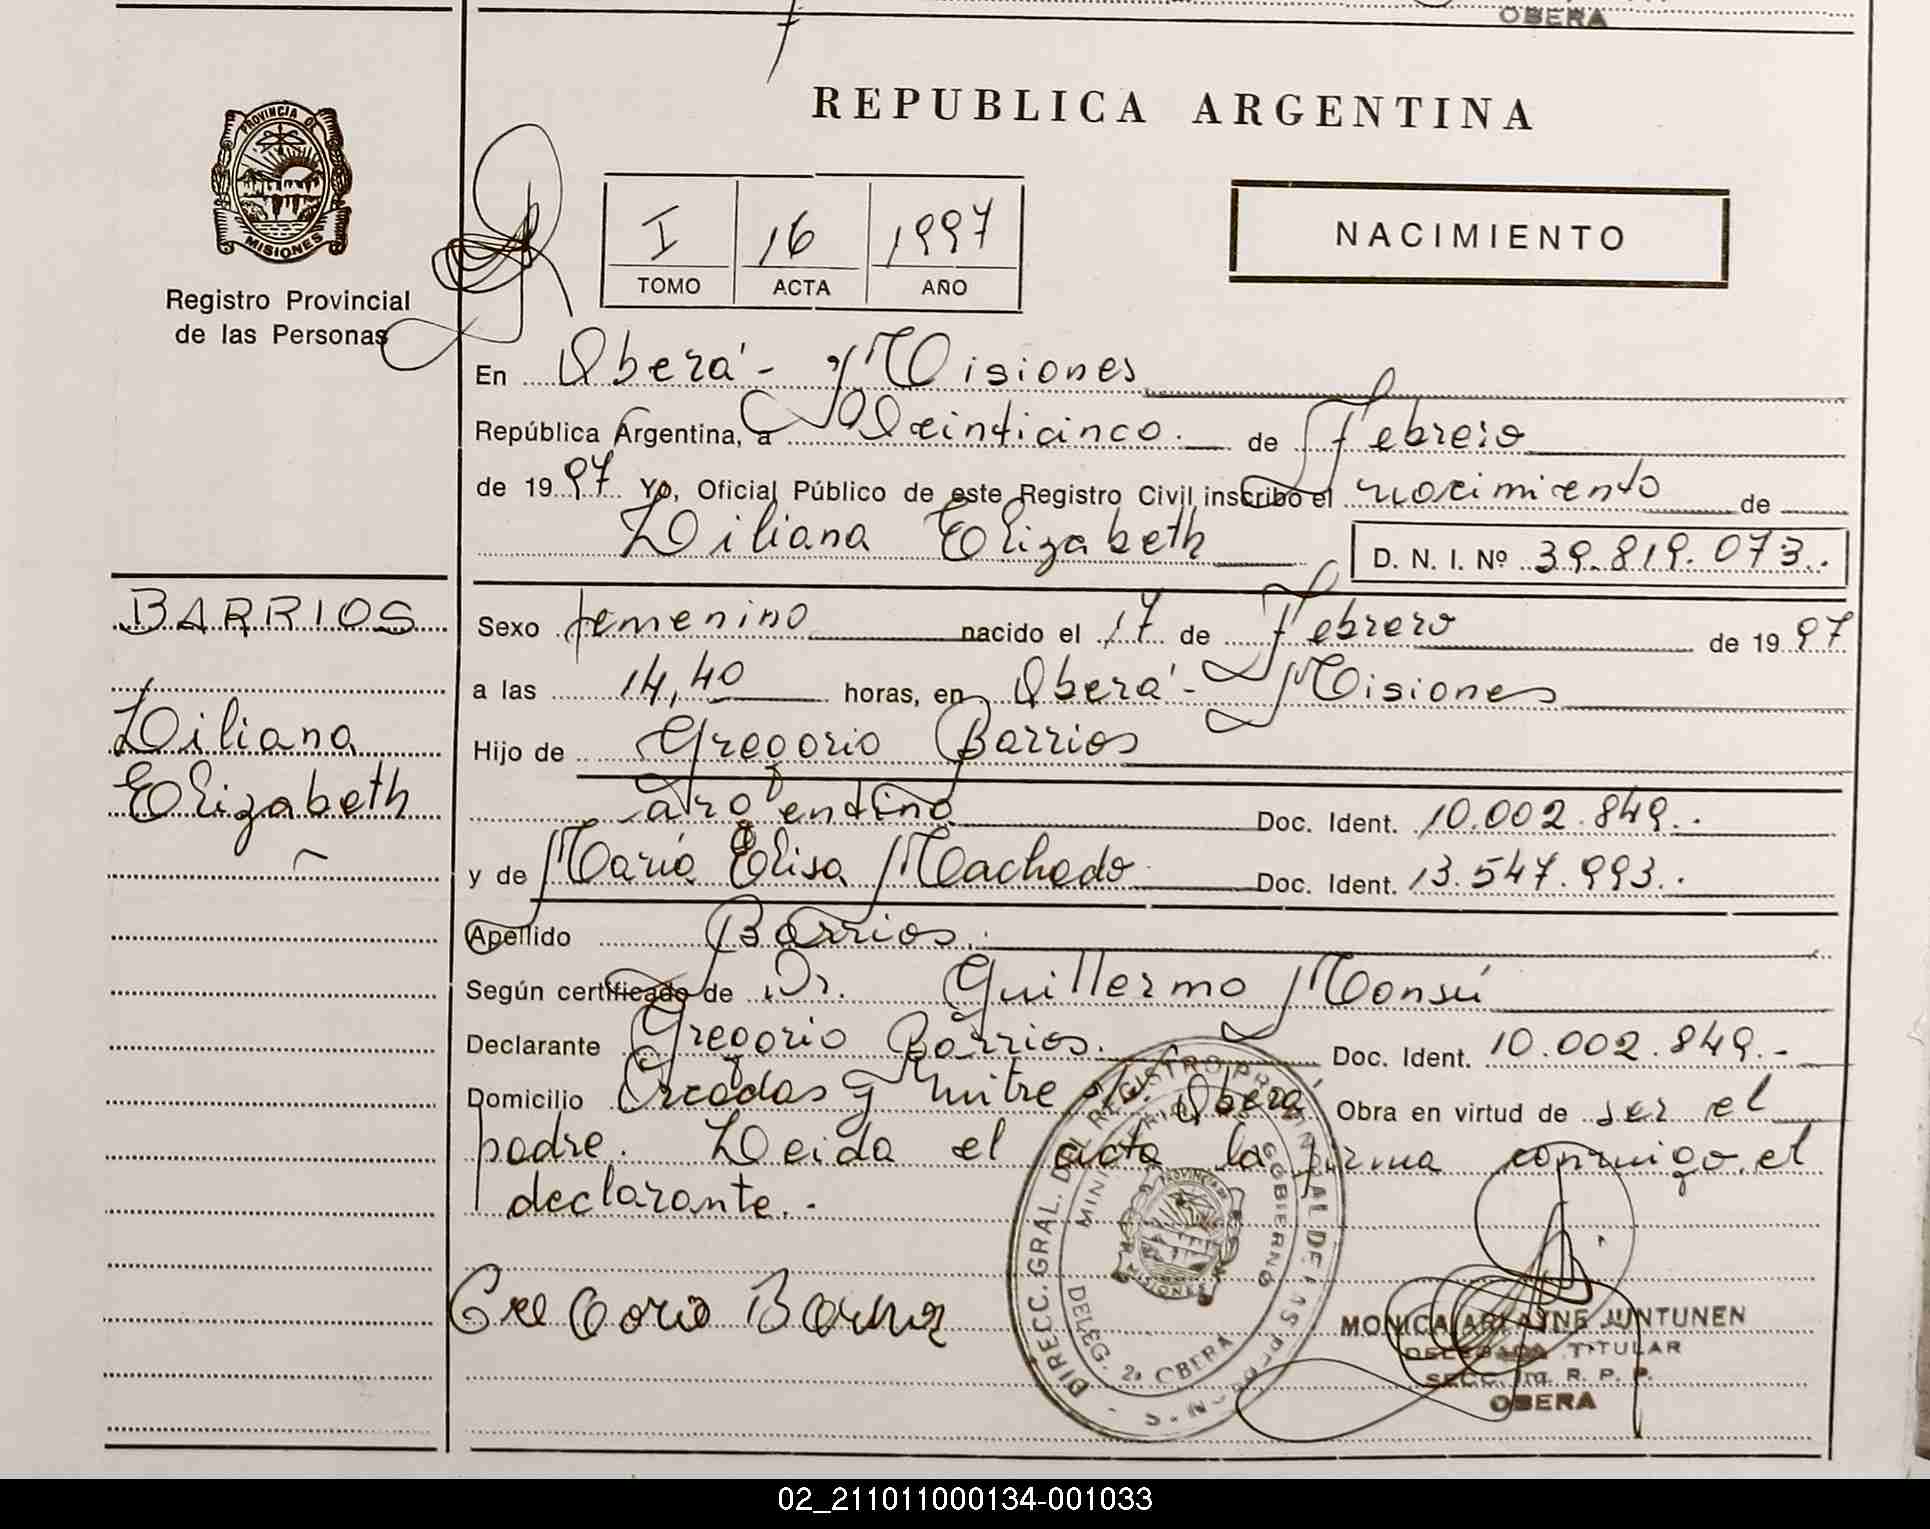 OBERA
REPUBLICA ARGENTINA
PROVINCIA DE
MISIONES
Registro Provincial
de las Personas
I 16 1997
TOMO ACTA AÑO
NACIMIENTO
En Oberá - Misiones
República Argentina, a Veinticinco. de Febrero
de 1997 Yo, Oficial Público de este Registro Civil, inscribo el nacimiento de
Liliana Elizabeth D. N. I. Nº 39.819.073..
BARRIOS
Liliana
Elizabeth
Sexo femenino nacido el 17 de Febrero de 1997
a las 14,40 horas, en Oberá - Misiones
Hijo de Gregorio Barrios
argentino Doc. Ident. 10.002.849..
y de María Elisa Machado Doc. Ident. 13.547.993..
Apellido Barrios.
Según certificado de Dr. Guillermo Monsú
Declarante Gregorio Barrios. Doc. Ident. 10.002.849.-
Domicilio Orcadas y Mitre Oberá Obra en virtud de ser el
padre. Leida el acta la firma conmigo el
declarante.-
DIRECC. GRAL. DEL REGISTRO PROVINCIAL DE LAS PERSONAS
MINISTERIO GOBIERNO
PROVINCIA DE
MISIONES
DELEG. 2a OBERA
Gregorio Barrios
MONICA ARLAINE JUNTUNEN
DELEGADA TITULAR
SECC. R. P. P.
OBERA
02_211011000134-001033